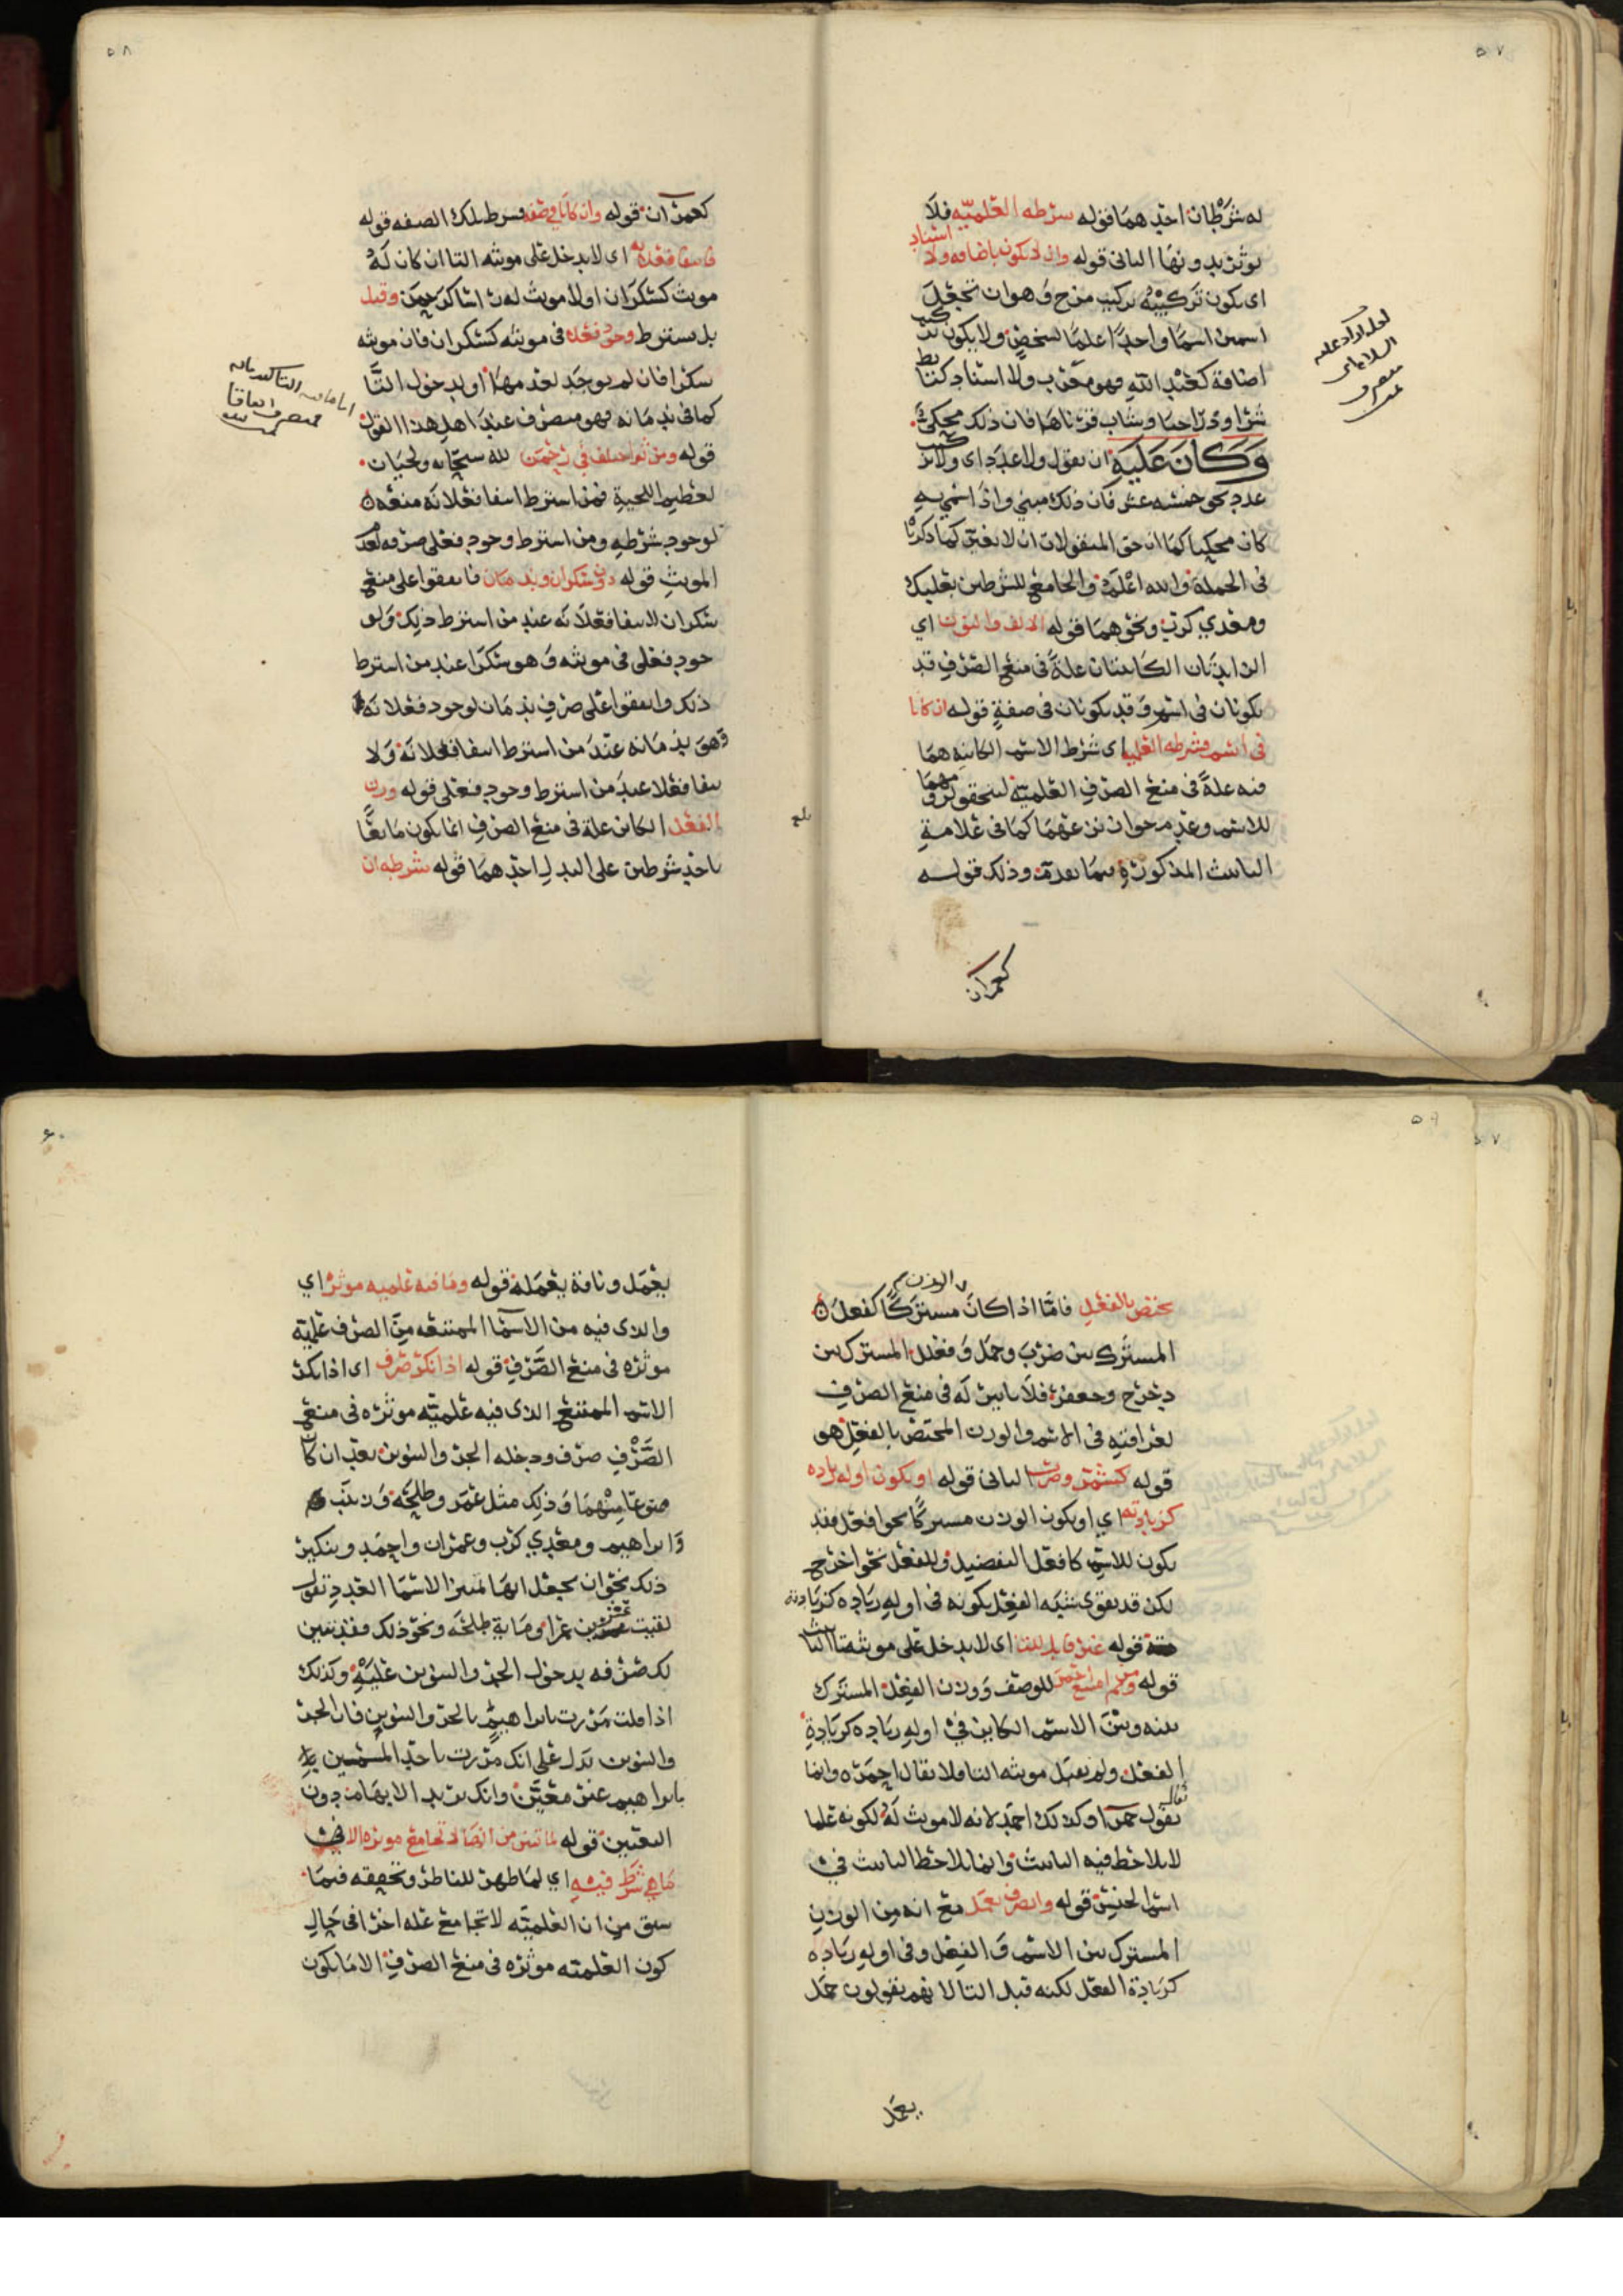 ٥٧
له شرطان احدهما قوله شرطه العلميه فلا
يوثر بدونها الثاني قوله وان لا يكون باضافه ولا اسناد
اي يكون تركيبه تركيب مزج وهو ان تجعل
اسمين اسما واحدا علما لشخص ولا يكون تركيب
اضافة كعبد الله فهو معرب ولا اسناد كتابط
شرا وذرا حبا وشاب قرناها فان ذلك محكي
وكان عليه ان يقول ولا عدد اي ولا تركيب
عدد نحو خمسه عشر فان ذلك مبني واذا سمي به
كان محكيا كما ان حق المنقولات ان لا تغير كما ذكرنا
في الجملة والله اعلم والجامع للشرطين بعلبك
ومعدي كرب ونحوهما قوله الالف والنون اي
الزايدتان الكاينتان علة في منع الصرف قد
يكونان في اسم وقد يكونان في صفة قوله ان كانا
في اسم فشرطه العلميه اي شرط الاسم الكاينه هما
فيه علة في منع الصرف العلمية ليتحقق لزومهما
للاسم وعدم جواز
التانيث المذكورة فيما تقدم وذلك قوله
كعمران
٥٨
كعمران قوله وان كانا في صفه فشرط تلك الصفه قوله
فانتفا فعلانه اي لا يدخل على مونثه التا ان كان له
مونث كسكران او لا مونث له
بل يشترط وجود فعلى في مونثه كسكران فان مونثه
سكرى فان لم يوجد
كما في ندمانه فهو منصرف عند اهل هذا القول
قوله ومن ثم اختلف في رحمن لله سبحانه ولحيان
لعظيم اللحية فمن اشترط انتفا فعلانه منعه
لوجود شرطه ومن اشترط وجود فعلى صرفه لعدم
المونث قوله دون سكران وندمان فاتفقوا على منع
سكران لانتفا فعلانه عند من اشترط ذلك ولو
جود فعلى في مونثه وهو سكرى عند من اشترط
ذلك واتفقوا على صرف ندمان لوجود فعلانه
وهو ندمانه عند من اشترط انتفا فعلانه ولا
نتفا فعلى عند من اشترط وجود فعلى قوله وزن
الفعل الكاين علة في منع الصرف انما يكون مانعا
باحد شرطين على البدل احدهما قوله شرطه ان
٥٩
يختص بالفعل فاما اذا كان الوزن مشتركا كفعل
المشترك بين ضرب وجمل وفعلل المشترك بين
دحرج وجعفر فلا تاثير له في منع الصرف
لعرافته في الاسم والوزن المختص بالفعل هو
قوله كشمر وضرب الثاني قوله او يكون اوله زياده
كزيادته اي او يكون الوزن مشتركا نحو افعل فقد
يكون للاسم كافعل التفضيل وللفعل نحو اخرج
لكن قد يقوى شبه الفعل بكونه في اوله زياده كزيادته
قوله غير قابل للتا اي لا يدخل على مونثه تا التانيث
قوله ومن ثم امتنع احمر للوصف ووزن الفعل المشترك
بينه وبين الاسم الكاين في اوله زياده كزيادة
الفعل ولم يقبل مونثه التا فلا يقال احمره وانما
يقال حمرا وكذلك احمد لانه لا مونث له لكونه علما
لا يلاحظ فيه التانيث وانما يلاحظ التانيث في
اسما الجنس قوله وانصرف يعمل مع انه من الوزن
المشترك بين الاسم والفعل وفي اوله زياده
كزيادة الفعل لكنه قبل التا لانهم يقولون جمل
يعمل
٦٠
يعمل وناقة يعمله قوله وما فيه علميه موثره اي
والذي فيه من الاسما الممتنعه من الصرف علمية
موثره في منع الصرف قوله اذا نكر صرف اي اذا نكر
الاسم الممتنع الذي فيه علميته موثره في منع
الصرف صرف ودخله الجر والتنوين بعد ان كان
ممنوعا منهما وذلك مثل عمر وطلحه وزينب
وابراهيم ومعدي كرب وعمران واحمد وتنكير
ذلك نحو ان
لقيت
لك صرفه بدخول الجر والتنوين عليه وكذلك
اذا قلت مررت بابراهيم بالجر والتنوين فان الجر
والتنوين يدل على انك مررت باحد المسمين
بابراهيم غير معين وانك تريد الابهام دون
التعيين قوله لما تبين من انها لا تجامع موثره الا
ما هي شرط فيه اي لما ظهر للناظر وتحققه فيما
سبق من ان العلميه لا تجامع عله اخرى في حال
كون العلميه موثره في منع الصرف الا ما يكون